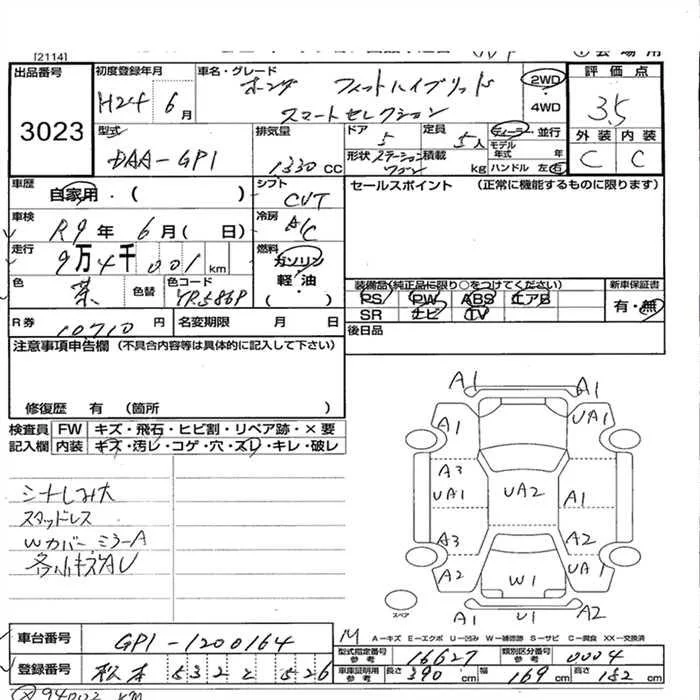 [2114]
出品番号
3023
初度登録年月
H24 6月
車名・グレード
ホンダ フィットハイブリッド
スマートセレクション
2WD
・
4WD
評価点
3.5
外装 内装
C C
型式
DAA-GP1
排気量
1330 CC
ドア
5
定員
5人
ディーラー・並行
モデル年式 年
形状 ステーションワゴン
積載 kg
ハンドル 左・右
車歴
自家用・( )
シフト
CVT
セールスポイント (正常に機能するものに限ります)
車検
R9年 6月( 日)
冷房
A/C
走行
9万4千001km
燃料
ガソリン
軽・油
( ・ )
色
茶
色替
色コード
YR586P
装備品(純正品に限り○をつけてください)
PS PW ABS エアB
SR ナビ TV
新車保証書
有・無
R券
10710円
名変期限 月 日
後日品
注意事項申告欄 (不具合内容等は具体的に記入して下さい)
修復歴 有 (箇所 )
検査員記入欄
FW キズ・飛石・ヒビ割・リペア跡・×要
内装 キズ・汚レ・コゲ・穴・スレ・キレ・破レ
シートしみ大
スタッドレス
Wカバー ミラーA
各小キズAU
A1
A1
A1
UA1
A3
UA1
UA2
A1
A3
A2
A2
UA1
W1
A1
U1
A2
スペア
車台番号
GP1-1200164
登録番号
松本 532 と 526
A−キズ E−エクボ U−凹み W−補修跡 S−サビ C−腐食 XX−交換済
型式指定番号
参考
16627
類別区分番号
参考
0004
車庫証明用
参考
長さ 390 cm
幅 169 cm
高さ 152 cm